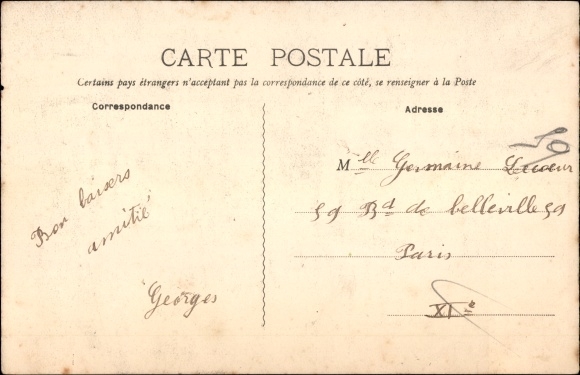 CARTE POSTALE
Certains pays étrangers n'acceptant pas la correspondance de ce côté, se renseigner à la Poste
Correspondance
Adresse
Bon baisers
amitié
Georges
59
Mlle Germaine Lecoeur
59 Bd de belleville 59
Paris
XIe